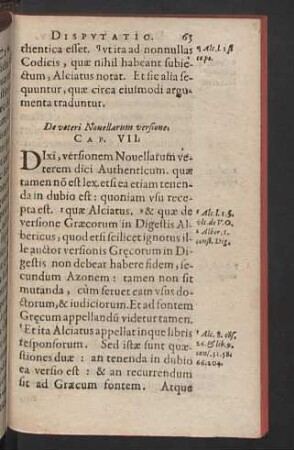 DISPVTATIO. 65
thentica esset. ¶vt ita ad nonnullas
Codicis, quæ nihil habeant subie-
ctum, Alciatus notat. Et sic alia se-
quuntur, quæ circa eiusmodi argu-
menta traduntur.
De veteri Nouellarum versione.
CAP. VII.
DIxi, versionem Nouellarum ve-
terem dici Authenticum. quæ
tamen nõ est lex. etsi ea etiam tenen-
da in dubio est: quoniam vsu rece-
pta est. quæ Alciatus. & quæ de
versione Græcorum in Digestis Al-
bericus, quod etsi scilicet ignotus il-
le auctor versionis Gręcorum in Di-
gestis non debeat habere fidem, se-
cundum Azonem: tamen non sit
mutanda, cùm seruet eam vsus do-
ctorum, & iudiciorum. Et ad fontem
Gręcum appellandũ videtur tamen.
Et ita Alciatus appellat in que libris
responsorum. Sed istæ sunt quæ-
stiones duæ: an tenenda in dubio
ea versio est: & an recurrendum
sit ad Græcum fontem. Atque
Alc. l. 1. §.
Alber. l.
const. Dig.
Alc. 8.
66. 204.